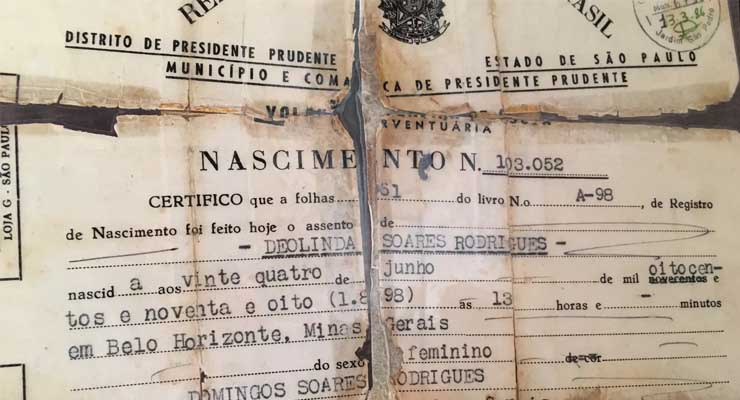 BRASIL
13.3.86
Jardim São Pedro
DISTRITO DE PRESIDENTE PRUDENTE ESTADO DE SÃO PAULO
MUNICÍPIO E COMA CA DE PRESIDENTE PRUDENTE
RVENTUÁRIA
NASCIMENTO N. 103.052
CERTIFICO que a folhas 51 do livro N.o A-98, de Registro
de Nascimento foi feito hoje o assento de
- DEOLINDA SOARES RODRIGUES -
nascid a aos vinte quatro de junho de mil novecentos e oitocen-
tos e noventa e oito (1.898) às 13 horas e - minutos
em Belo Horizonte, Minas Gerais
do sexo feminino de cor
DOMINGOS SOARES RODRIGUES
LOJA G - SÃO PAULO